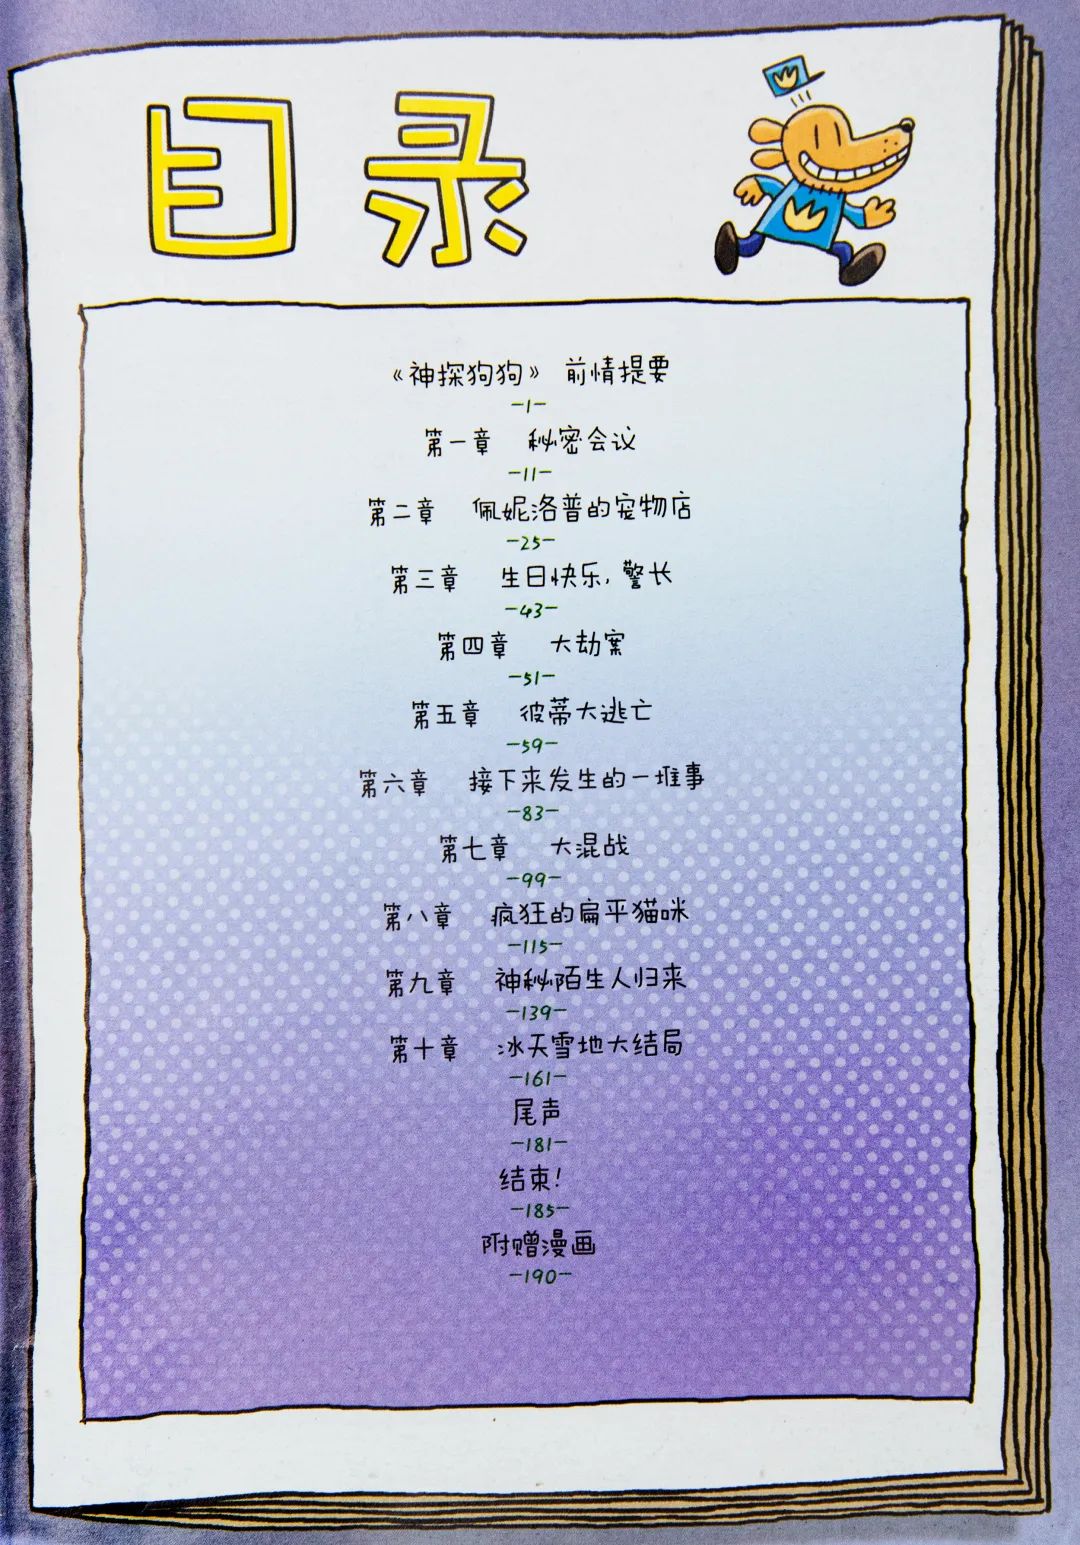 目录
《神探狗狗》 前情提要
-1-
第一章 秘密会议
-11-
第二章 佩妮洛普的宠物店
-25-
第三章 生日快乐，警长
-43-
第四章 大劫案
-51-
第五章 彼蒂大逃亡
-59-
第六章 接下来发生的一堆事
-83-
第七章 大混战
-99-
第八章 疯狂的扁平猫咪
-115-
第九章 神秘陌生人归来
-139-
第十章 冰天雪地大结局
-161-
尾声
-181-
结束！
-185-
附赠漫画
-190-